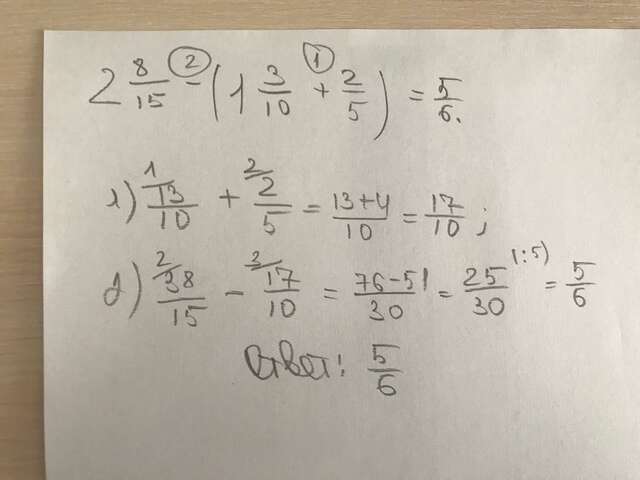 2 8/15 - (1 3/10 + 2/5) = 5/6.
1) 13/10 + 2/5 = 13+4/10 = 17/10;
2) 38/15 - 17/10 = 76-51/30 = 25/30 (:5) = 5/6
Ответ: 5/6